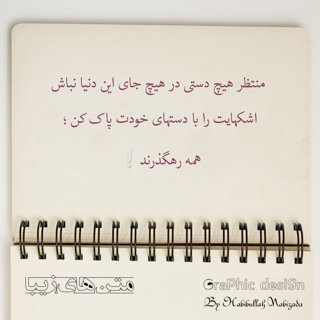 منتظر هیچ دستی در هیچ جای این دنیا نباش
اشکهایت را با دستهای خودت پاک کن ؛
همه رهگذرند !
متن های زیبا
GraPhic desiGn
By Habibullah Nabizada